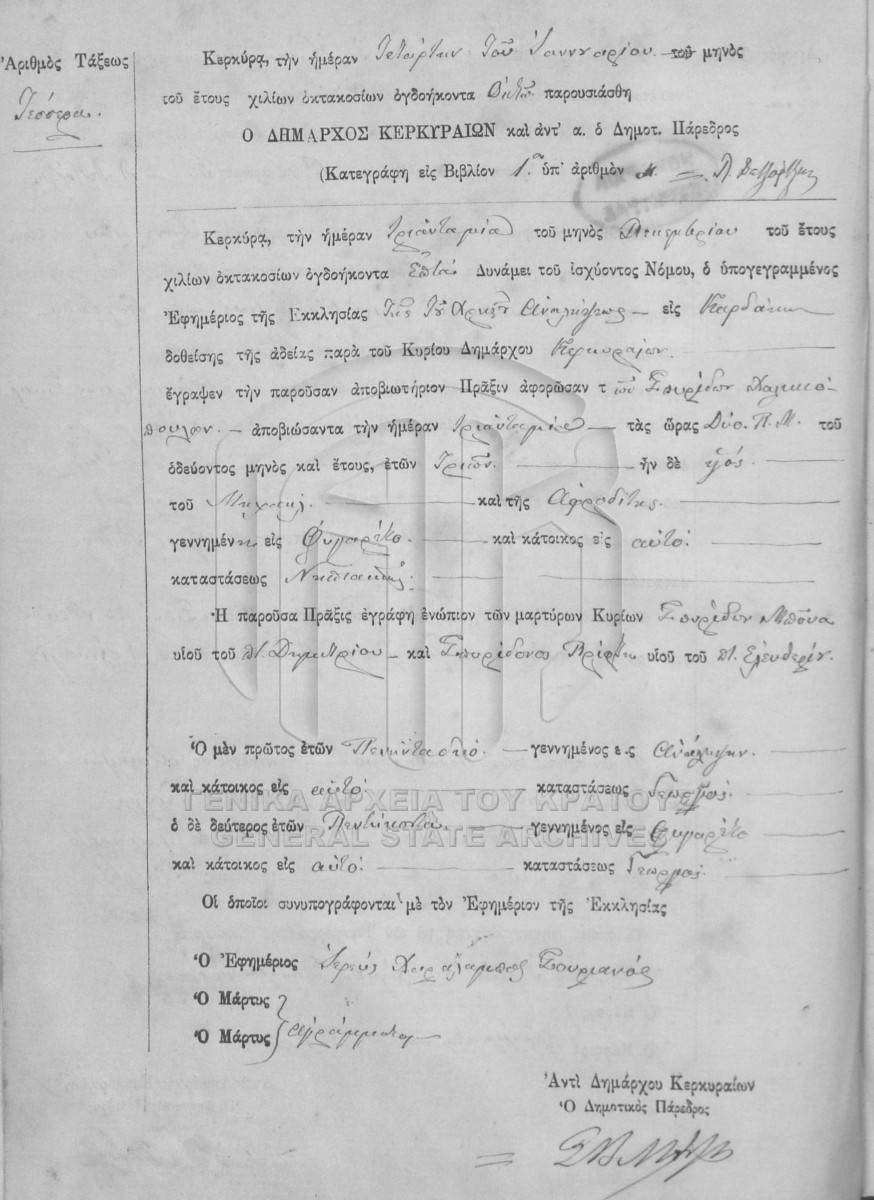 Ἀριθμὸς Τάξεως
Τέσσερα.
Κερκύρᾳ, τὴν ἡμέραν Τετάρτην τοῦ Ἰαννουαρίου τοῦ μηνὸς
τοῦ ἔτους χιλίων ὀκτακοσίων ὀγδοήκοντα Ὀκτὼ παρουσιάσθη
Ο ΔΗΜΑΡΧΟΣ ΚΕΡΚΥΡΑΙΩΝ καὶ ἀντ' α. ὁ Δημοτ. Πάρεδρος
(Κατεγράφη εἰς Βιβλίον 1ον ὑπ' ἀριθμὸν
Κερκύρᾳ, τὴν ἡμέραν Τριάντα μία τοῦ μηνὸς Δεκεμβρίου τοῦ ἔτους
χιλίων ὀκτακοσίων ὀγδοήκοντα Ἑπτά Δυνάμει τοῦ ἰσχύοντος Νόμου, ὁ ὑπογεγραμμένος
Ἐφημέριος τῆς Εκκλησίας τῆς τοῦ Χριστοῦ Ἀναλήψεως εἰς
δοθείσης τῆς ἀδείας παρὰ τοῦ Κυρίου Δημάρχου Κερκυραίων
ἔγραψεν τὴν παροῦσαν ἀποβιωτήριον Πρᾶξιν ἀφορῶσαν τ ὸν Σπυρίδων Χαλικιό-
πουλον. ἀποβιώσαντα τὴν ἡμέραν τριάντα μία τὰς ὥρας Δύο. Π. Μ. τοῦ
ὁδεύοντος μηνὸς καὶ ἔτους, ἐτῶν Τριῶν. ἦν δὲ υἱός.
τοῦ Μιχαήλ. καὶ τῆς Αφροδίτης.
γεννημένον εἰς Φιγαρέτο. καὶ κάτοικος εἰς αὐτό.
καταστάσεως Νηπιακῆς.
Ἡ παροῦσα Πρᾶξις ἐγράφη ἐνώπιον τῶν μαρτύρων Κυρίων Σπυρίδων Μπόνα
υἱοῦ τοῦ Π. Δημητρίου καὶ Σπυρίδονος υἱοῦ τοῦ Π. Ελευθερίου.
Ὁ μὲν πρῶτος ἐτῶν Πενήντα δύο. γεννημένος ε ς Ἀνάληψιν.
καὶ κάτοικος εἰς αὐτό. καταστάσεως Γεωργός.
ὁ δὲ δεύτερος ἐτῶν γεννημένος εἰς Φιγαρέτο
καὶ κάτοικος εἰς αὐτό. καταστάσεως Γεωργός.
Οἱ ὁποῖοι συνυπογράφονται μὲ τὸν Ἐφημέριον τῆς Ἐκκλησίας
Ὁ Ἐφημέριος Ἱερεύς Χαράλαμπος Σουριανός
Ὁ Μάρτυς
Ὁ Μάρτυς Ἀγράμματοι
Ἀντὶ Δημάρχου Κερκυραίων
Ὁ Δημοτικὸς Πάρεδρος
ΓΕΝΙΚΑ ΑΡΧΕΙΑ ΤΟΥ ΚΡΑΤΟΥΣ
GENERAL STATE ARCHIVES